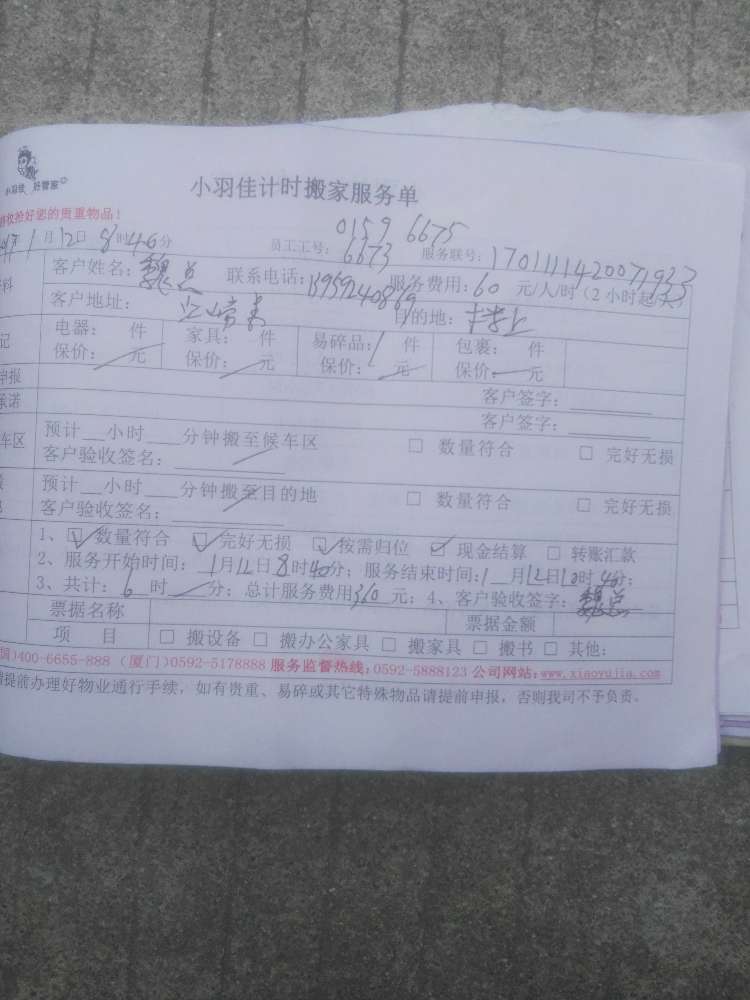 小羽佳 好管家
小羽佳计时搬家服务单
收拾好您的贵重物品!
1月12日8时46分
0159 6675
员工工号: 6673 服务联号:1701111420071933
客户姓名:魏总 联系电话:13959240869 服务费用:60 元/人/时(2小时起/次)
客户地址: 目的地:
电器: 件 家具: 件 易碎品: 件 包裹: 件
保价: 元 保价: 元 保价: 元 保价: 元
申报 客户签字:
承诺 客户签字:
预计 小时 分钟搬至候车区 □ 数量符合 □ 完好无损
车区 客户验收签名:
预计 小时 分钟搬至目的地 □ 数量符合 □ 完好无损
客户验收签名:
1、☑ 数量符合 ☑ 完好无损 ☑ 按需归位 ☑ 现金结算 □ 转账汇款
2、服务开始时间:1月12日8时40分;服务结束时间:1月12日10时40分;
3、共计:6 时 分;总计服务费用360元;4、客户验收签字:魏总
票据名称 票据金额
项 目 □ 搬设备 □ 搬办公家具 □ 搬家具 □ 搬书 □ 其他:
国)400-6655-888(厦门)0592-5178888 服务监督热线:0592-5888123 公司网站:www.xiaoyujia.com
请提前办理好物业通行手续,如有贵重、易碎或其它特殊物品请提前申报,否则我司不予负责。